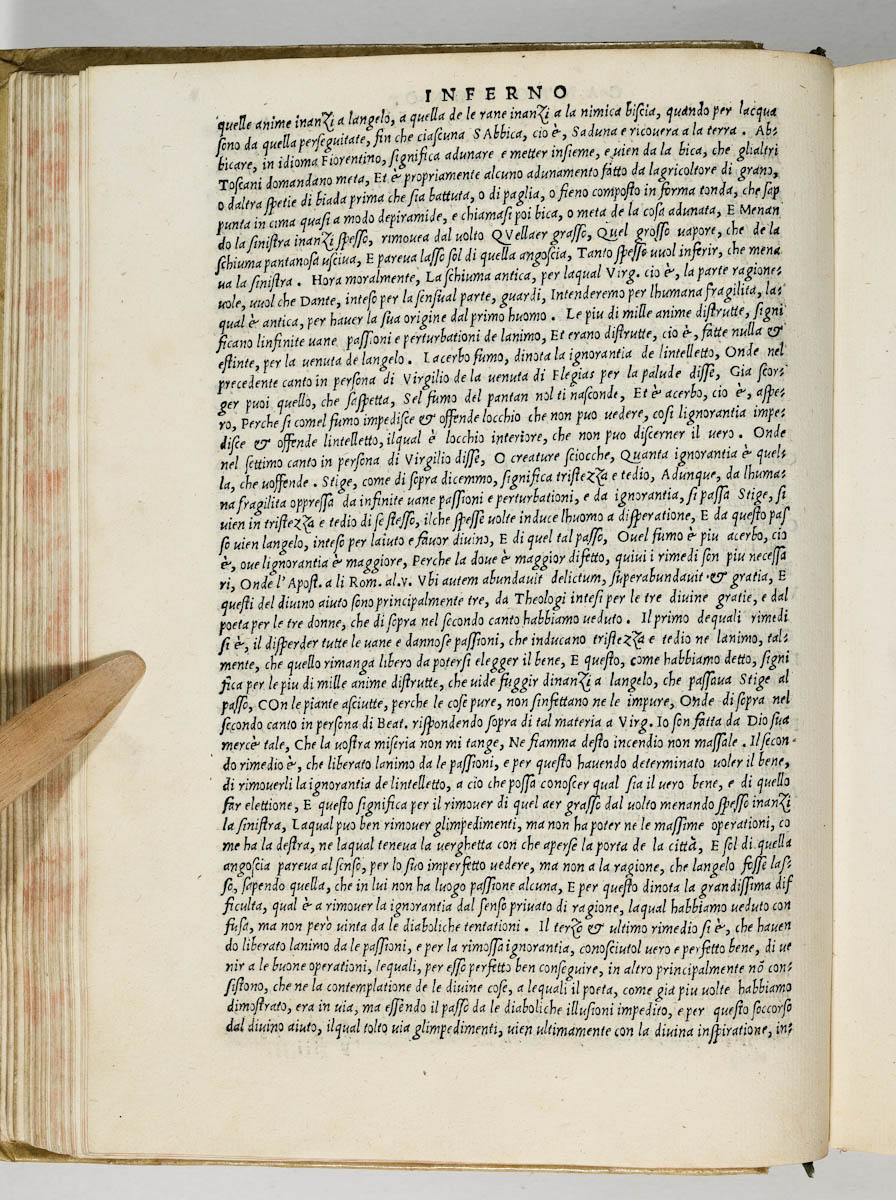 INFERNO
quelle anime inanzi a langelo, a quella de le rane inanzi a la nimica biscia, quando per lacqua
sono da quella perseguitate, fin che ciascuna SAbbica, cio è, Saduna e ricouera a la terra. Ab-
bicare, in idioma Fiorentino, significa adunare e metter insieme, e uien da la bica, che glialtri
Toscani domandano meta, Et è propriamente alcuno adunamento fatto da lagricoltore di grano,
o daltra spetie di biada prima che sia battuta, o di paglia, o fieno composto in forma tonda, che sap
punta in cima quasi a modo depiramide, e chiamasi poi bica, o meta de la cosa adunata, E Menan
do la sinistra inanzi spesso, rimouea dal uolto QVellaer grasso, Quel grosso uapore, che de la
schiuma pantanosa usciua, E pareua lasso sol di quella angoscia, Tanto spesso uuol inferir, che mena
ua la sinistra. Hora moralmente, La schiuma antica, per laqual Virg. cio è, la parte ragione-
uole, uuol che Dante, inteso per la sensual parte, guardi, Intenderemo per lhumana fragilita, la-
qual è antica, per hauer la sua origine dal primo huomo. Le piu di mille anime distrutte, signi
ficano linfinite uane passioni e perturbationi de lanimo, Et erano distrutte, cio è, fatte nulla &
estinte, per la uenuta de langelo. Lacerbo fumo, dinota la ignorantia de lintelletto, Onde nel
precedente canto in persona di Virgilio de la uenuta di Flegias per la palude disse, Gia scor-
ger puoi quello, che saspetta, Sel fumo del pantan nol ti nasconde, Et è acerbo, cio è, aspe-
ro, Perche si comel fumo impedisce & offende locchio che non puo uedere, cosi lignorantia impe-
disce & offende lintelletto, ilqual è locchio interiore, che non puo discerner il uero. Onde
nel settimo canto in persona di Virgilio disse, O creature sciocche, Quanta ignorantia è quel-
la, che uoffende. Stige, come di sopra dicemmo, significa tristezza e tedio, Adunque, da lhuma-
na fragilita oppressa da infinite uane passioni e perturbationi, e da ignorantia, si passa Stige, si
uien in tristezza e tedio di se stesso, ilche spesse uolte induce lhuomo a disperatione, E da questo pas
so uien langelo, inteso per laiuto e fauor diuino, E di quel tal passo, Ouel fumo è piu acerbo, cio
è, oue lignorantia è maggiore, Perche la doue è maggior difetto, quiui i rimedi son piu necessa
ri, Onde l'Apost. a li Rom. al.v. Vbi autem abundauit delictum, superabundauit & gratia, E
questi del diuino aiuto sono principalmente tre, da Theologi intesi per le tre diuine gratie, e dal
poeta per le tre donne, che di sopra nel secondo canto habbiamo ueduto. Il primo dequali rimedi
si è, il disperder tutte le uane e dannose passioni, che inducano tristezza e tedio ne lanimo, tal-
mente, che quello rimanga libero da potersi elegger il bene, E questo, come habbiamo detto, signi
fica per le piu di mille anime distrutte, che uide fuggir dinanzi a langelo, che passaua Stige al
passo, COn le piante asciutte, perche le cose pure, non sinfettano ne le impure, Onde di sopra nel
secondo canto in persona di Beat. rispondendo sopra di tal materia a Virg. Io son fatta da Dio sua
mercè tale, Che la uostra miseria non mi tange, Ne fiamma desto incendio non massale. Il secon-
do rimedio è, che liberato lanimo da le passioni, e per questo hauendo determinato uoler il bene,
di rimouerli la ignorantia de lintelletto, a cio che possa conoscer qual sia il uero bene, e di quello
far elettione, E questo significa per il rimouer di quel aer grasso dal uolto menando spesso inanzi
la sinistra, Laqual puo ben rimouer glimpedimenti, ma non ha poter ne le massime operationi, co
me ha la destra, ne laqual teneua la uerghetta con che aperse la porta de la città, E sol di quella
angoscia pareua al senso, per lo suo imperfetto uedere, ma non a la ragione, che langelo fosse las-
so, sapendo quella, che in lui non ha luogo passione alcuna, E per questo dinota la grandissima dif
ficulta, qual è a rimouer la ignorantia dal senso priuato di ragione, laqual habbiamo ueduto con
fusa, ma non però uinta da le diaboliche tentationi. Il terzo & ultimo rimedio si è, che hauen
do liberato lanimo da le passioni, e per la rimossa ignorantia, conosciutol uero e perfetto bene, di ue
nir a le buone operationi, lequali, per esso perfetto ben conseguire, in altro principalmente nõ con-
sistono, che ne la contemplatione de le diuine cose, a lequali il poeta, come gia piu uolte habbiamo
dimostrato, era in uia, ma essendo il passo da le diaboliche illusioni impedito, e per questo soccorso
dal diuino aiuto, ilqual tolto uia glimpedimenti, uien ultimamente con la diuina inspiratione, in-